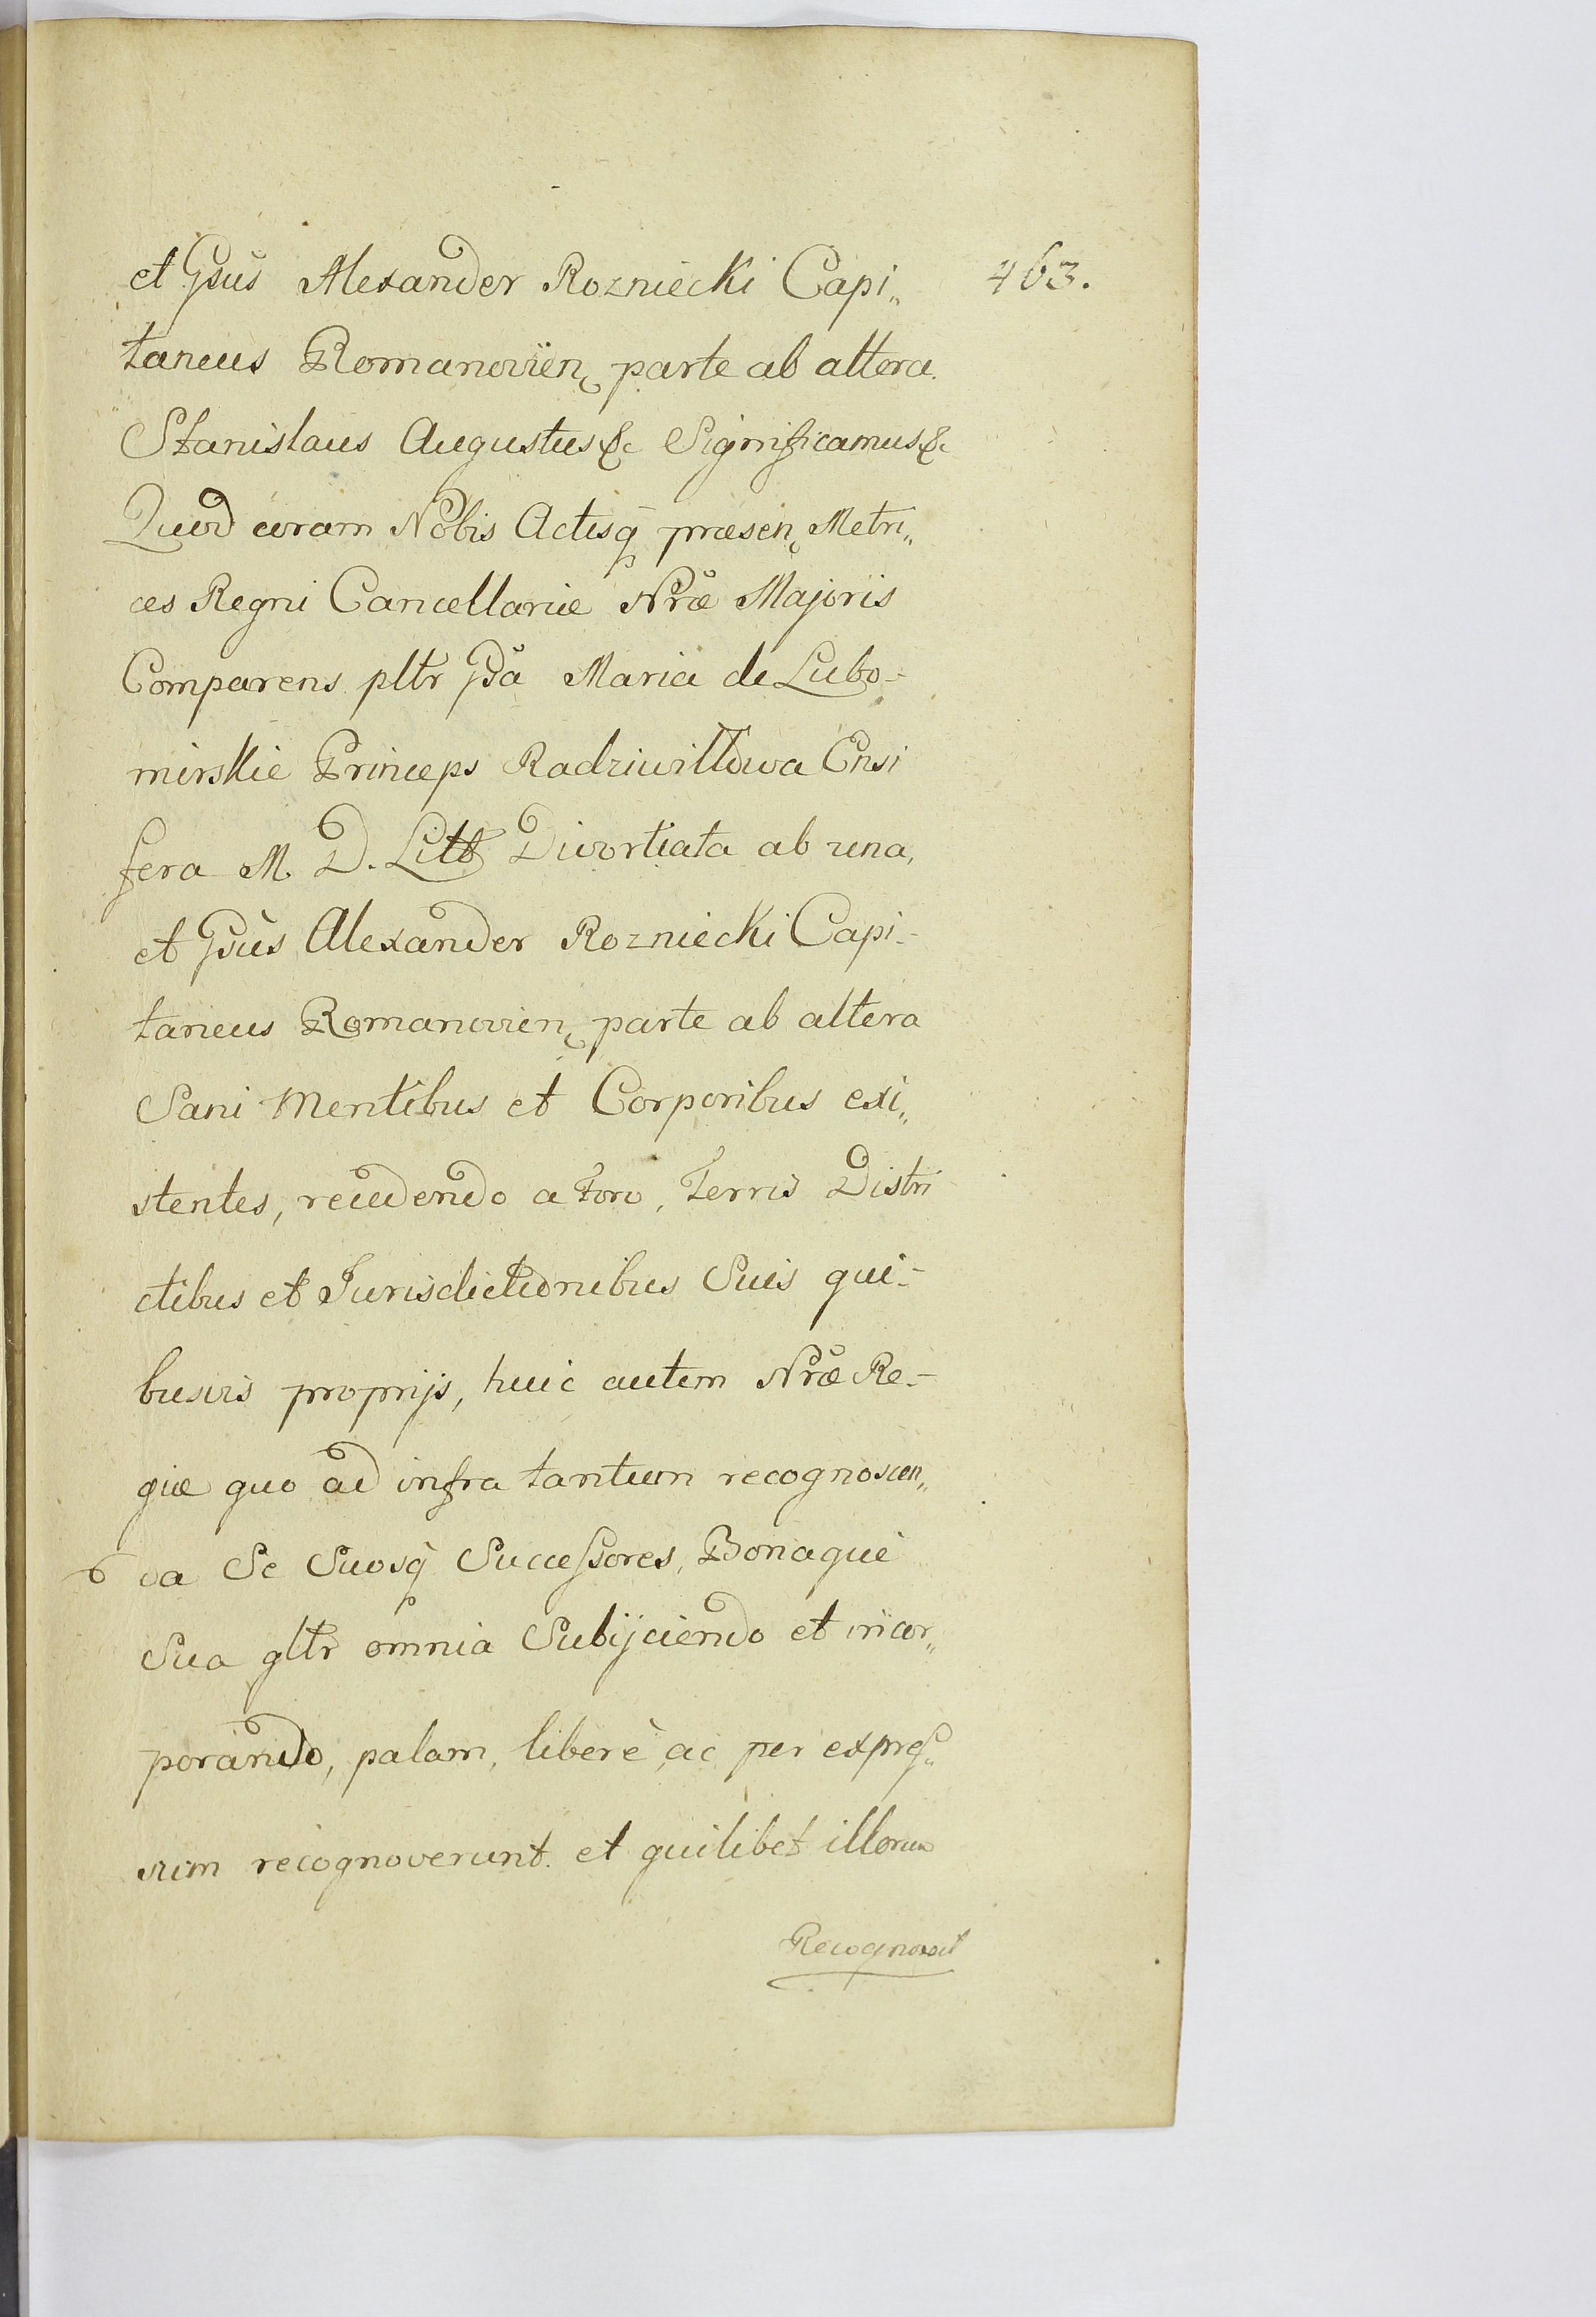 463.
et Gsus Alexander Rozniecki Capi„
taneus Romanovien parte ab altera.
Stanislaus Augustus &c Significamus &c
Quod coram Nobis Actisq præsen Metri„
ces Regni Cancellariæ Nræ Majoris
Comparens pltr Gsa Maria de Lubo-
mirskie Princeps Radziwillowa Ensi
fera M. D. Litt Divortiata ab una,
et Gsus Alexander Rozniecki Capi-
taneus Romanovien parte ab altera
Sani Mentibus et Corporibus exi„
stentes, recedendo a Foro, Terris Distri
ctibus et Jurisdictionibus Suis qui-
busvis proprijs, huic autem Nræ Re-
giæ quo ad infra tantum recognoscen„
da Se Suosq Successores, Bonaque
Sua gltr omnia Subijciendo et incor„
porando, palam, libere ac per expres„
sum recognoverunt. et quilibet illorum
Recognovit